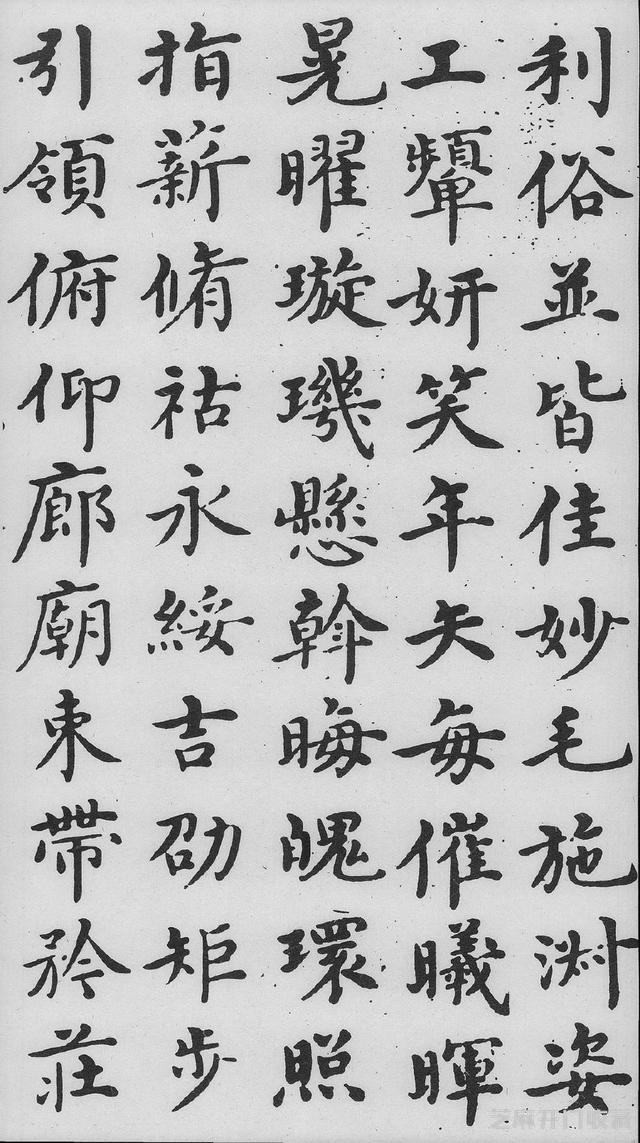 利俗並皆佳妙毛施渊姿
工顰妍笑年矢每催曦暉
晃曜璇璣懸斡晦魄環照
指薪脩祜永綏吉劭矩步
引領俯仰廊廟束帶矜莊
芝麻开门收藏